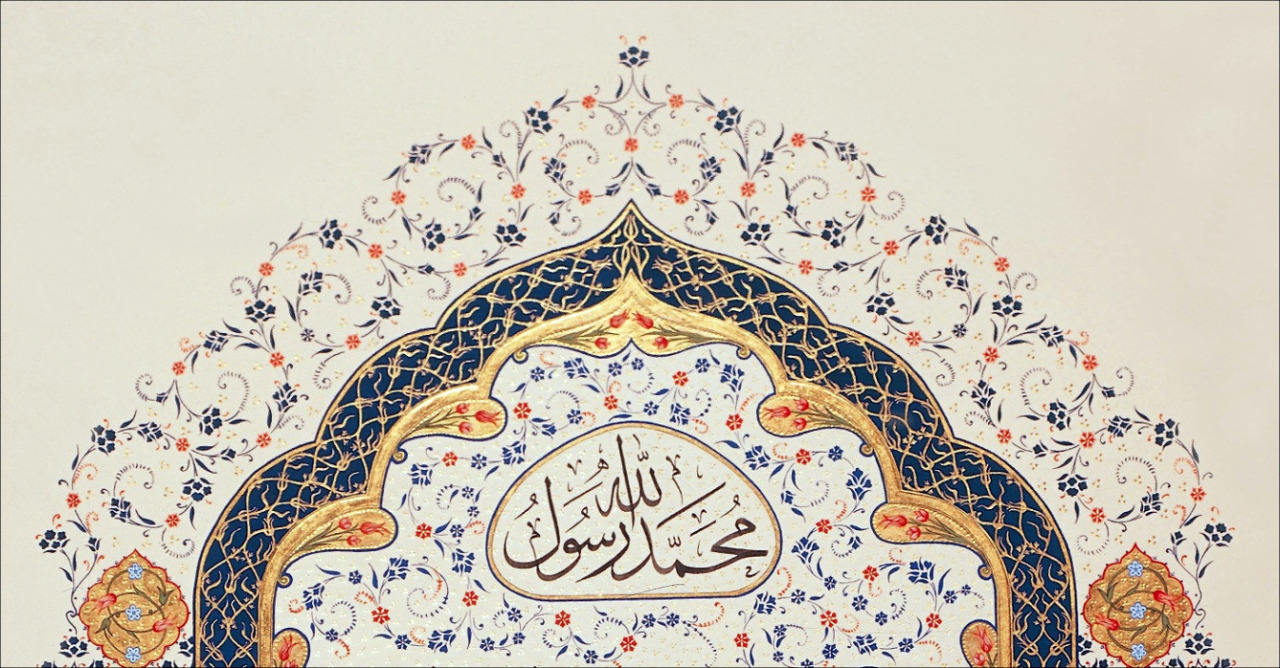 مُحَمَّد رسُول الله